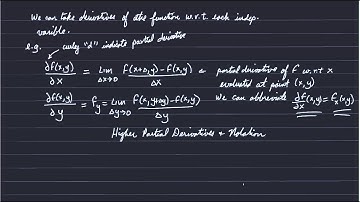 We can take derivatives of the function w.r.t. each indep.
variable.
e.g. curley "d" indicate partial derivative
∂f(x,y)/∂x = lim Δx→0 f(x+Δ,y)-f(x,y)/Δx = partial derivative of f w.r.t x
evaluated at point (x,y)
∂f(x,y)/∂y = fy = lim Δy→0 f(x,y+Δy)-f(x,y)/Δy We can abbreviate ∂f/∂x(x,y)=fx(x,y)
Higher Partial Derivatives & Notation